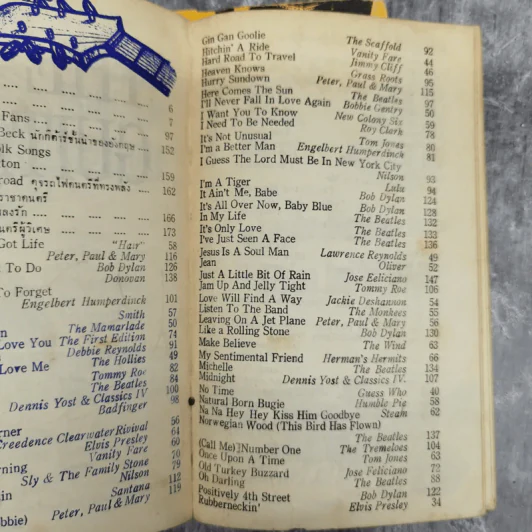 .... .... .... .... 6
.... .... .... .... 7
Fans .... .... .... 97
Beck นักกีต้าร์ชั้นนำของอังกฤษ .... 152
lk Songs
ton .... .... .... 159
road ดุริยโฟดนตรีที่ทรงพลัง .... 162
ราชาดนตรี
ลงรัก .... .... .... 166
นตรีผู้วิเศษ .... .... 173
Got Life "Hair" 58
Peter, Paul & Mary 116
t To Do Bob Dylan 126
Donovan 138
To Forget
Engelbert Humperdinck 101
Smith 57
n The Mamarlade 50
Love You The First Edition 74
Debbie Reynolds 91
Love Me The Hollies 49
Tommy Roe 82
The Beatles 84
Dennis Yost & Classics IV. 100
Badfinger 98
rner 56
Creedence Clearwater Rivival 64
Elvis Presley 60
rning Vanity Fare 70
Sly & The Family Stone 79
Nilson 112
in Santana 119
Peter, Paul & Mary
bbie)
Gin Gan Goolie The Scaffold 92
Hitchin' A Ride Vanity Fare 44
Hard Road To Travel Jimmy Cliff 46
Heaven Knows Grass Roots 95
Hurry Sundown Peter, Paul & Mary 115
Here Comes The Sun The Beatles 97
I'll Never Fall In Love Again Bobbie Gentry 50
I Want You To Know New Colony Six 59
I Need To Be Needed Roy Clark 78
It's Not Unusual Tom Jones 80
I'm a Better Man Engelbert Humperdinck 81
I Guess The Lord Must Be In New York City
Nilson 93
I'm A Tiger Lulu 94
It Ain't Me, Babe Bob Dylan 124
It's All Over Now, Baby Blue Bob Dylan 128
In My Life The Beatles 132
It's Only Love The Beatles 133
I've Just Seen A Face The Beatles 136
Jesus Is A Soul Man Lawrence Reynolds 49
Jean Oliver 52
Just A Little Bit Of Rain Jose Eeliciano 147
Jam Up And Jelly Tight Tommy Roe 106
Love Will Find A Way Jackie Deshannon 54
Listen To The Band The Monkees 55
Leaving On A Jet Plane Peter, Paul & Mary 56
Like a Rolling Stone Bob Dylan 130
Make Believe The Wind 63
My Sentimental Friend Herman's Hermits 66
Michelle The Beatles 134
Midnight Dennis Yost & Classics IV. 107
No Time Guess Who 40
Natural Born Bugie Humble Pie 58
Na Na Hey Hey Kiss Him Goodbye Steam 62
Norwegian Wood (This Bird Has Flown)
The Beatles 137
(Call Me) Number One The Tremeloes 104
Once Upon A Time Tom Jones 63
Old Turkey Buzzard Jose Feliciano 72
Oh Darling The Beatles 88
Positively 4th Street Bob Dylan 122
Rubberneckin' Elvis Presley 34